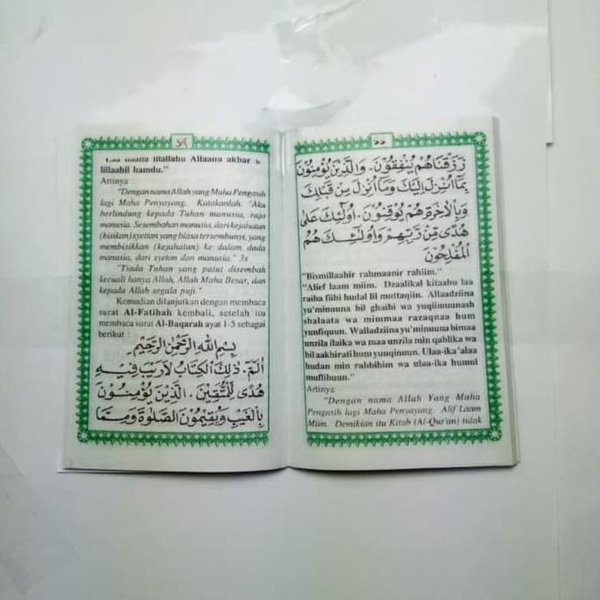 ٥٤
Laa ilaaha illallahu Allaahu akbar
lillaahil hamdu."
Artinya :
"Dengan nama Allah yang Maha Pengasih
lagi Maha Penyayang. Katakanlah, "Aku
berlindung kepada Tuhan manusia, raja
manusia. Sesembahan manusia, dari kejahatan
(bisikan) syetan yang biasa tersembunyi, yang
membisikkan (kejahatan) ke dalam dada
manusia, dari syetan dan manusia." 3x
"Tiada Tuhan yang patut disembah
kecuali hanya Allah, Allah Maha Besar, dan
kepada Allah segala puji."
Kemudian dilanjutkan dengan membaca
surat Al-Fatihah kembali, setelah itu
membaca surat Al-Baqarah ayat 1-5 sebagai
berikut :
بِسْمِ اللهِ الرَّحْمٰنِ الرَّحِيْمِ
الٓمّٓ. ذٰلِكَ الْكِتَابُ لَارَيْبَ فِيْهِ
هُدًى لِلْمُتَّقِيْنَ. الَّذِيْنَ يُؤْمِنُوْنَ
بِالْغَيْبِ وَيُقِيْمُوْنَ الصَّلٰوةَ وَمِمَّا
٥٥
رَزَقْنَاهُمْ يُنْفِقُوْنَ. وَالَّذِيْنَ يُؤْمِنُوْنَ
بِمَآ اُنْزِلَ اِلَيْكَ وَمَآ اُنْزِلَ مِنْ قَبْلِكَ
وَبِالْاٰخِرَةِ هُمْ يُوْقِنُوْنَ. اُولٰٓئِكَ عَلٰى
هُدًى مِّنْ رَّبِّهِمْ وَاُولٰٓئِكَ هُمُ
الْمُفْلِحُوْنَ
"Bismillaahir rahmaanir rahiim."
"Alief laam miim. Dzaalikal kitaabu laa
raiba fiihi hudal lil muttaqiin. Allaadziina
yu'minuuna bil ghaibi wa yuqiimuunash
shalaata wa mimmaa razaqnaa hum
yunfiquun. Walladziina yu'minuuna bimaa
unzila ilaika wa maa unzila min qablika wa
bil aakhirati hum yuuqinuun. Ulaa-ika 'alaa
hudan min rabbihim wa ulaa-ika humul
muflihuun."
Artinya:
"Dengan nama Allah Yang Maha
Pengasih lagi Maha Penyayang. Alif Laam
Miim. Demikian itu Kitab (Al-Qur'an) tidak